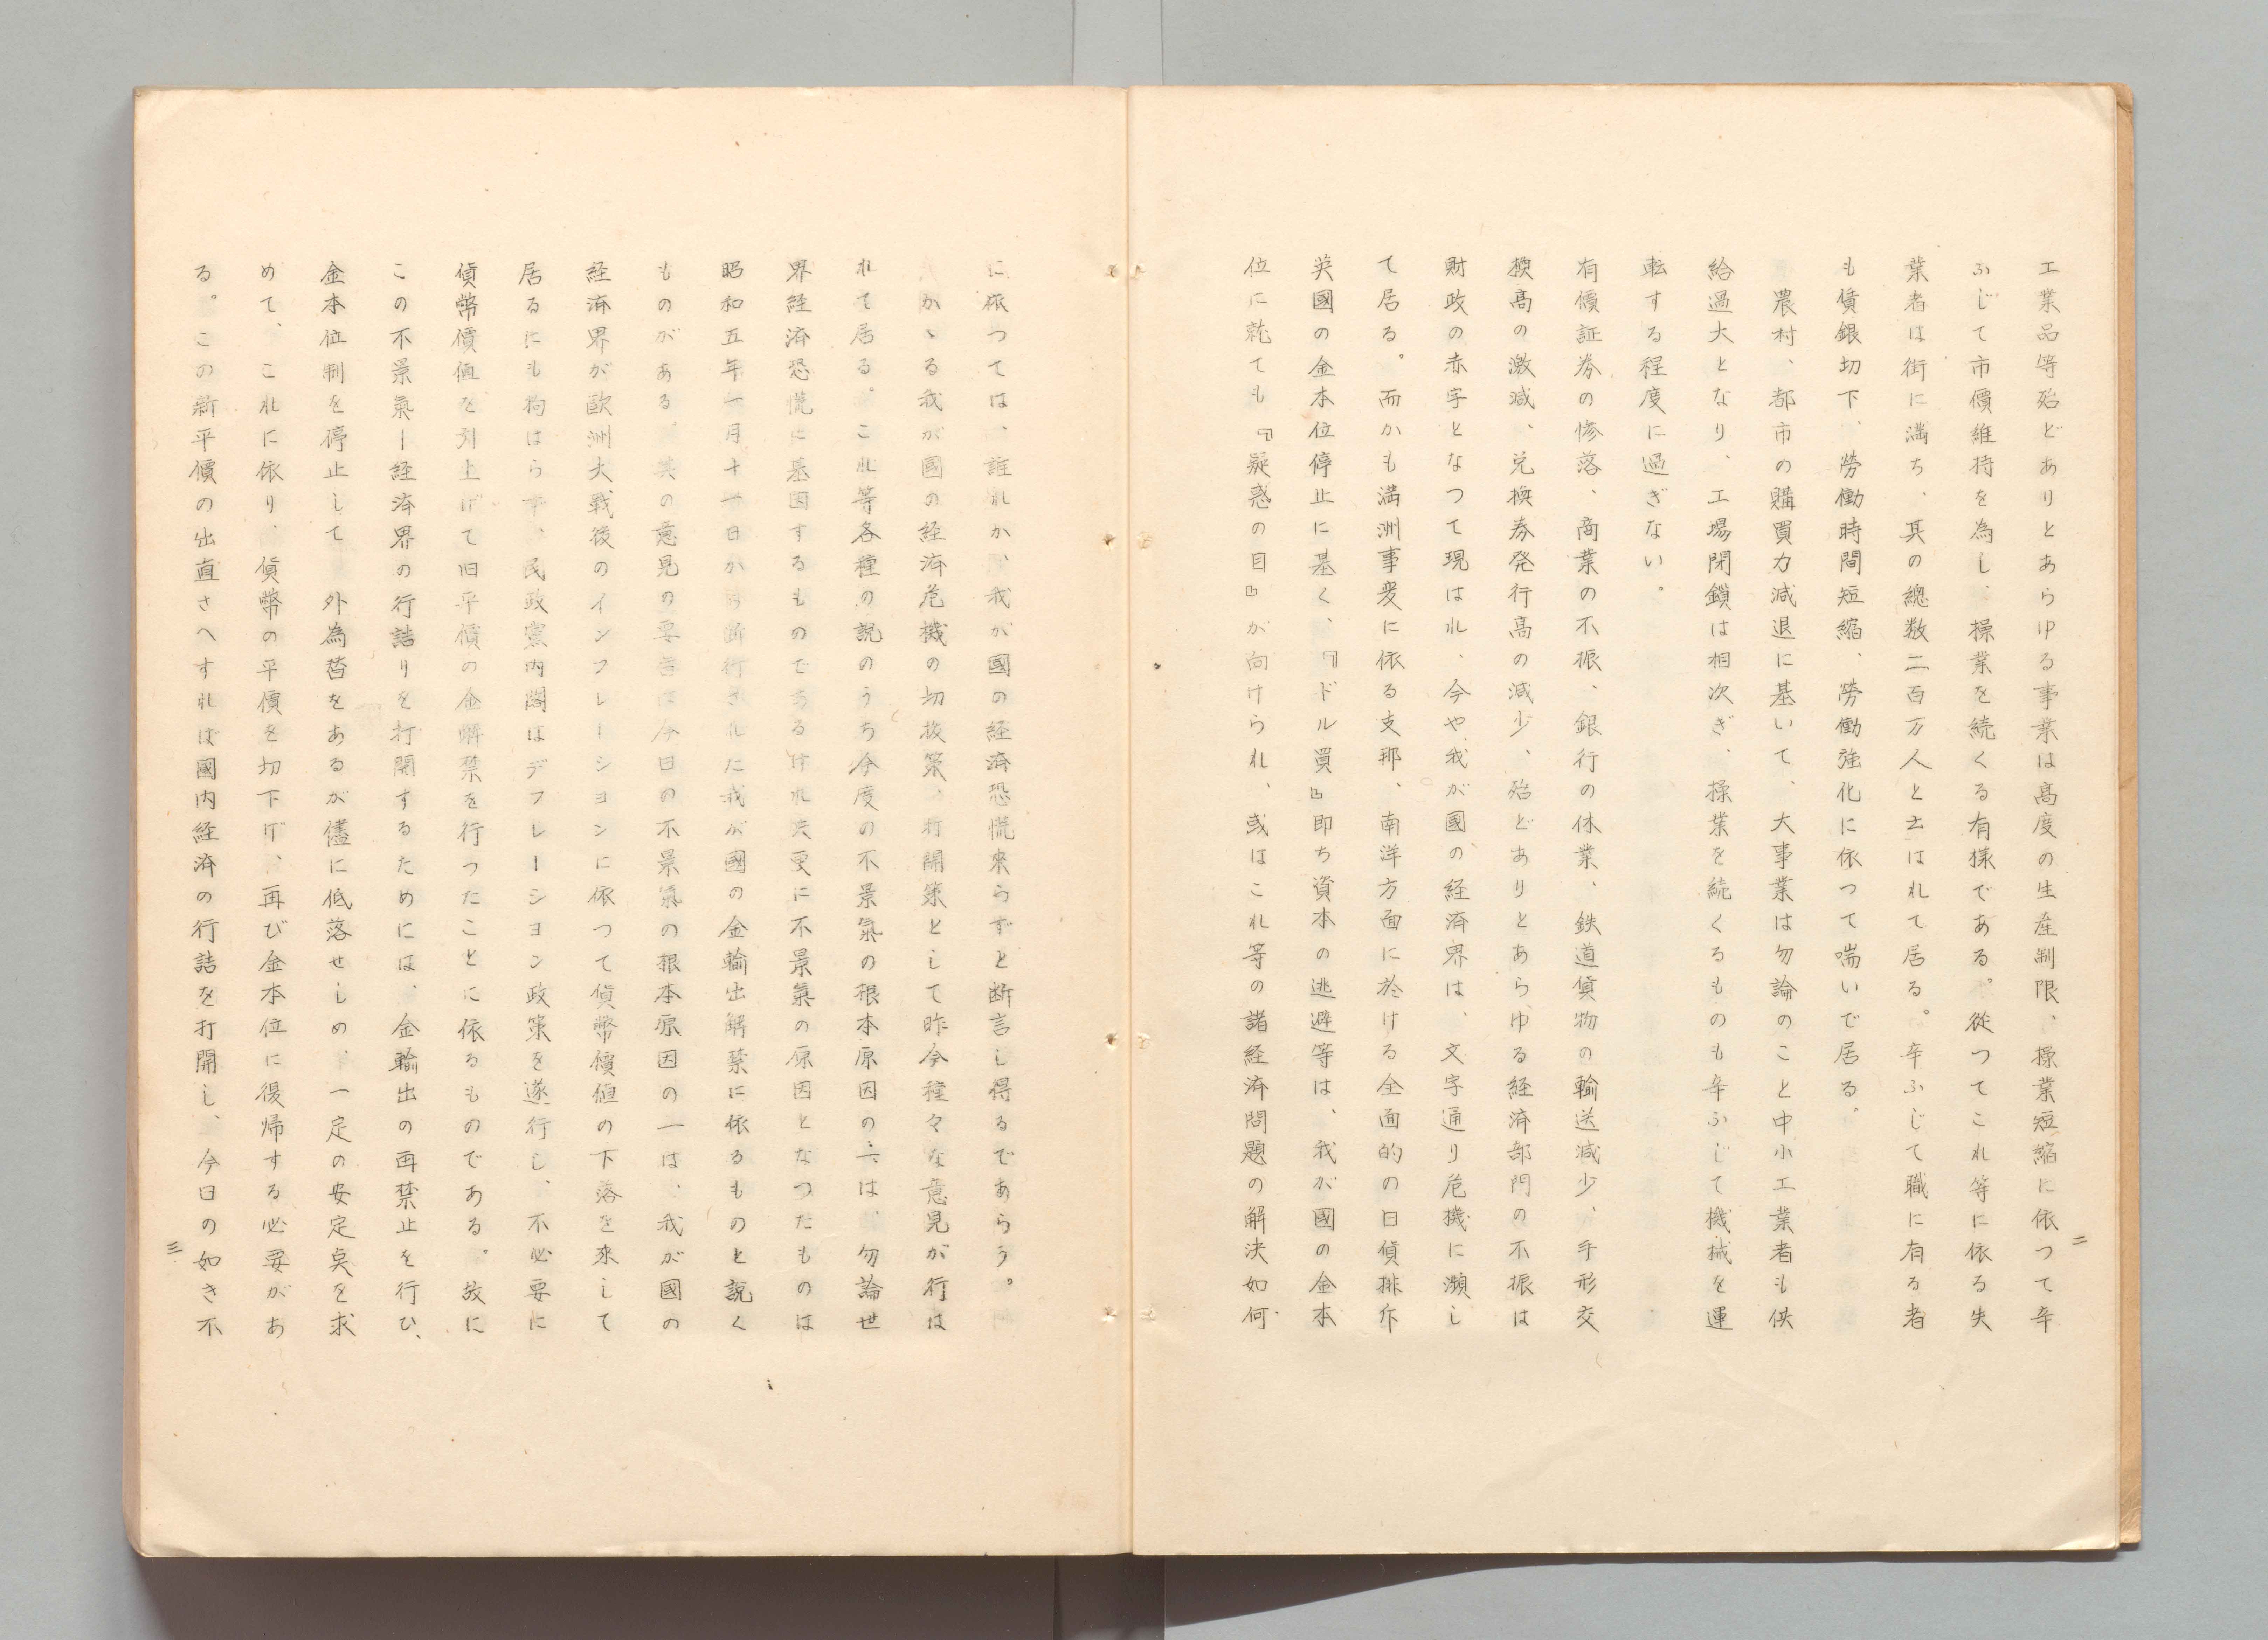 二
工業品等殆どありとあらゆる事業は高度の生産制限、操業短縮に依つて辛
ふじて市價維持を為し、操業を続くる有様である。従つてこれ等に依る失
業者は街に満ち、其の總数二百万人と云はれて居る。辛ふじて職に有る者
も賃銀切下、勞働時間短縮、勞働強化に依つて喘いで居る、
農村、都市の購買力減退に基いて、大事業は勿論のこと中小工業者も供
給過大となり、工場閉鎖は相次ぎ、操業を続くるものも辛ふじて機械を運
転する程度に過ぎない。
有價証券の惨落、商業の不振、銀行の休業、鉄道貨物の輸送減少、手形交
換高の激減、兌換券発行高の減少、殆どありとあらゆる経済部門の不振は
財政の赤字となつて現はれ、今や我が國の経済界は、文字通り危機に瀕し
て居る。而かも満洲事変に依る支那、南洋方面に於ける全面的の日貨排斥
英國の金本位停止に基く、『ドル買』即ち資本の逃避等は、我が國の金本
位に就ても『疑惑の目』が向けられ、或はこれ等の諸経済問題の解決如何
に依つては、誰れか、我が國の経済恐慌来らずと断言し得るであらう。
かゝる我が國の経済危機の切抜策、打開策として昨今種々な意見が行は
れて居る。これ等各種の説のうち今度の不景氣の根本原因の一は、勿論世
界経済恐慌に基因するものであるけれ共更に不景氣の原因となつたものは
昭和五年一月十一日から断行された我が國の金輸出解禁に依るものと説く
ものがある、其の意見の要旨は今日の不景氣の根本原因の一は、我が國の
経済界が欧洲大戦後のインフレーションに依つて貨幣價値の下落を来して
居るにも拘はらず、民政黨内閣はデフレーション政策を遂行し、不必要に
貨幣價値を引上げて旧平價の金解禁を行つたことに依るものである。故に
この不景氣ー経済界の行詰りを打開するためには、金輸出の再禁止を行ひ、
金本位制を停止して外為替をあるが儘に低落せしめ、一定の安定点を求
めて、これに依り、貨幣の平價を切下げ、再び金本位に復帰する必要があ
る。この新平價の出直さへすれば國内経済の行詰を打開し、今日の如き不
三